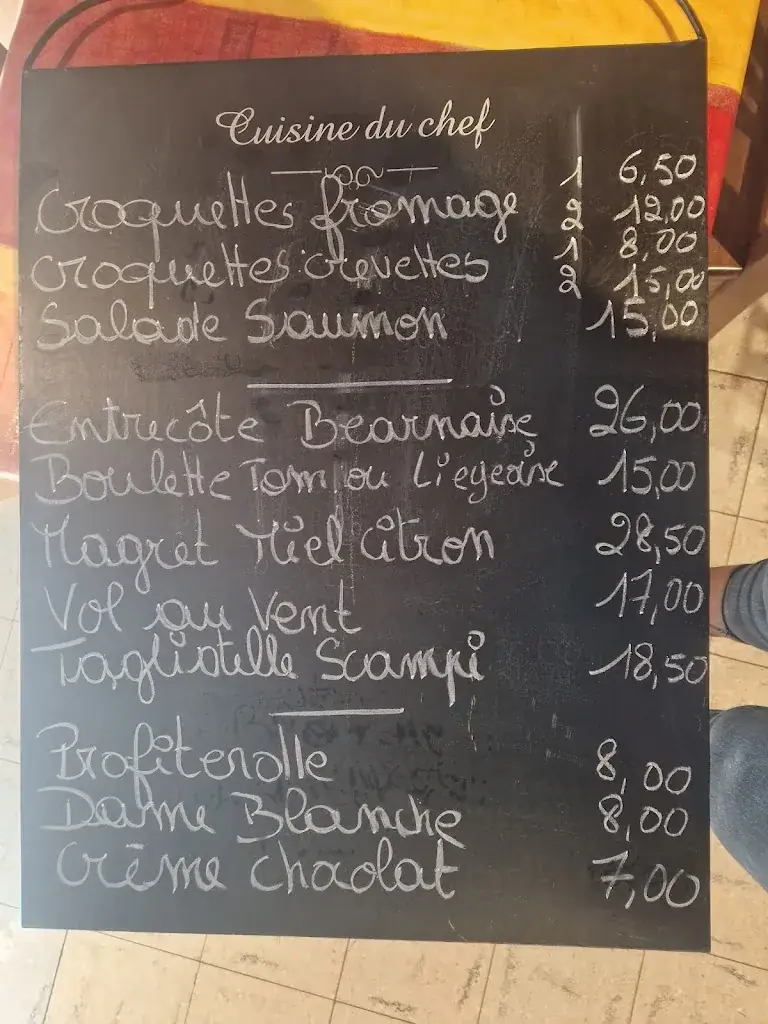 Cuisine du chef
Croquettes fromage 1 6,50
2 12,00
Croquettes crevettes 1 8,00
2 15,00
Salade Saumon 15,00
Entrecôte Bearnaise 26,00
Boulette Tom ou Liegeoise 15,00
Magret Miel citron 28,50
Vol au Vent 17,00
Tagliatelle Scampi 18,50
Profiterolle 8,00
Dame Blanche 8,00
Crème chaolat 7,00